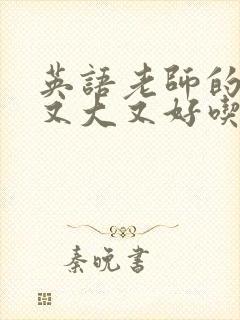 英語老師的
又大又好喫
秦晚書